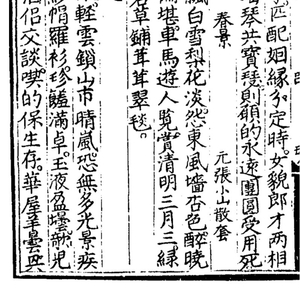 匹配姻緣不定時女貌郎才兩相
瑤琴共寶瑟則願的永遠團圓受用死
春景
元張小山散套
飄白雪梨花淡然東風墻杏色醉曉
堪車馬遊人覽賞清明三月三綠
草鋪茸茸翠毯
輕雲鎖山市晴嵐恐無多光景疾
羅衫琢鱸滿卓玉液盈壜歌兒
侶交談喫的保生存華屋羣